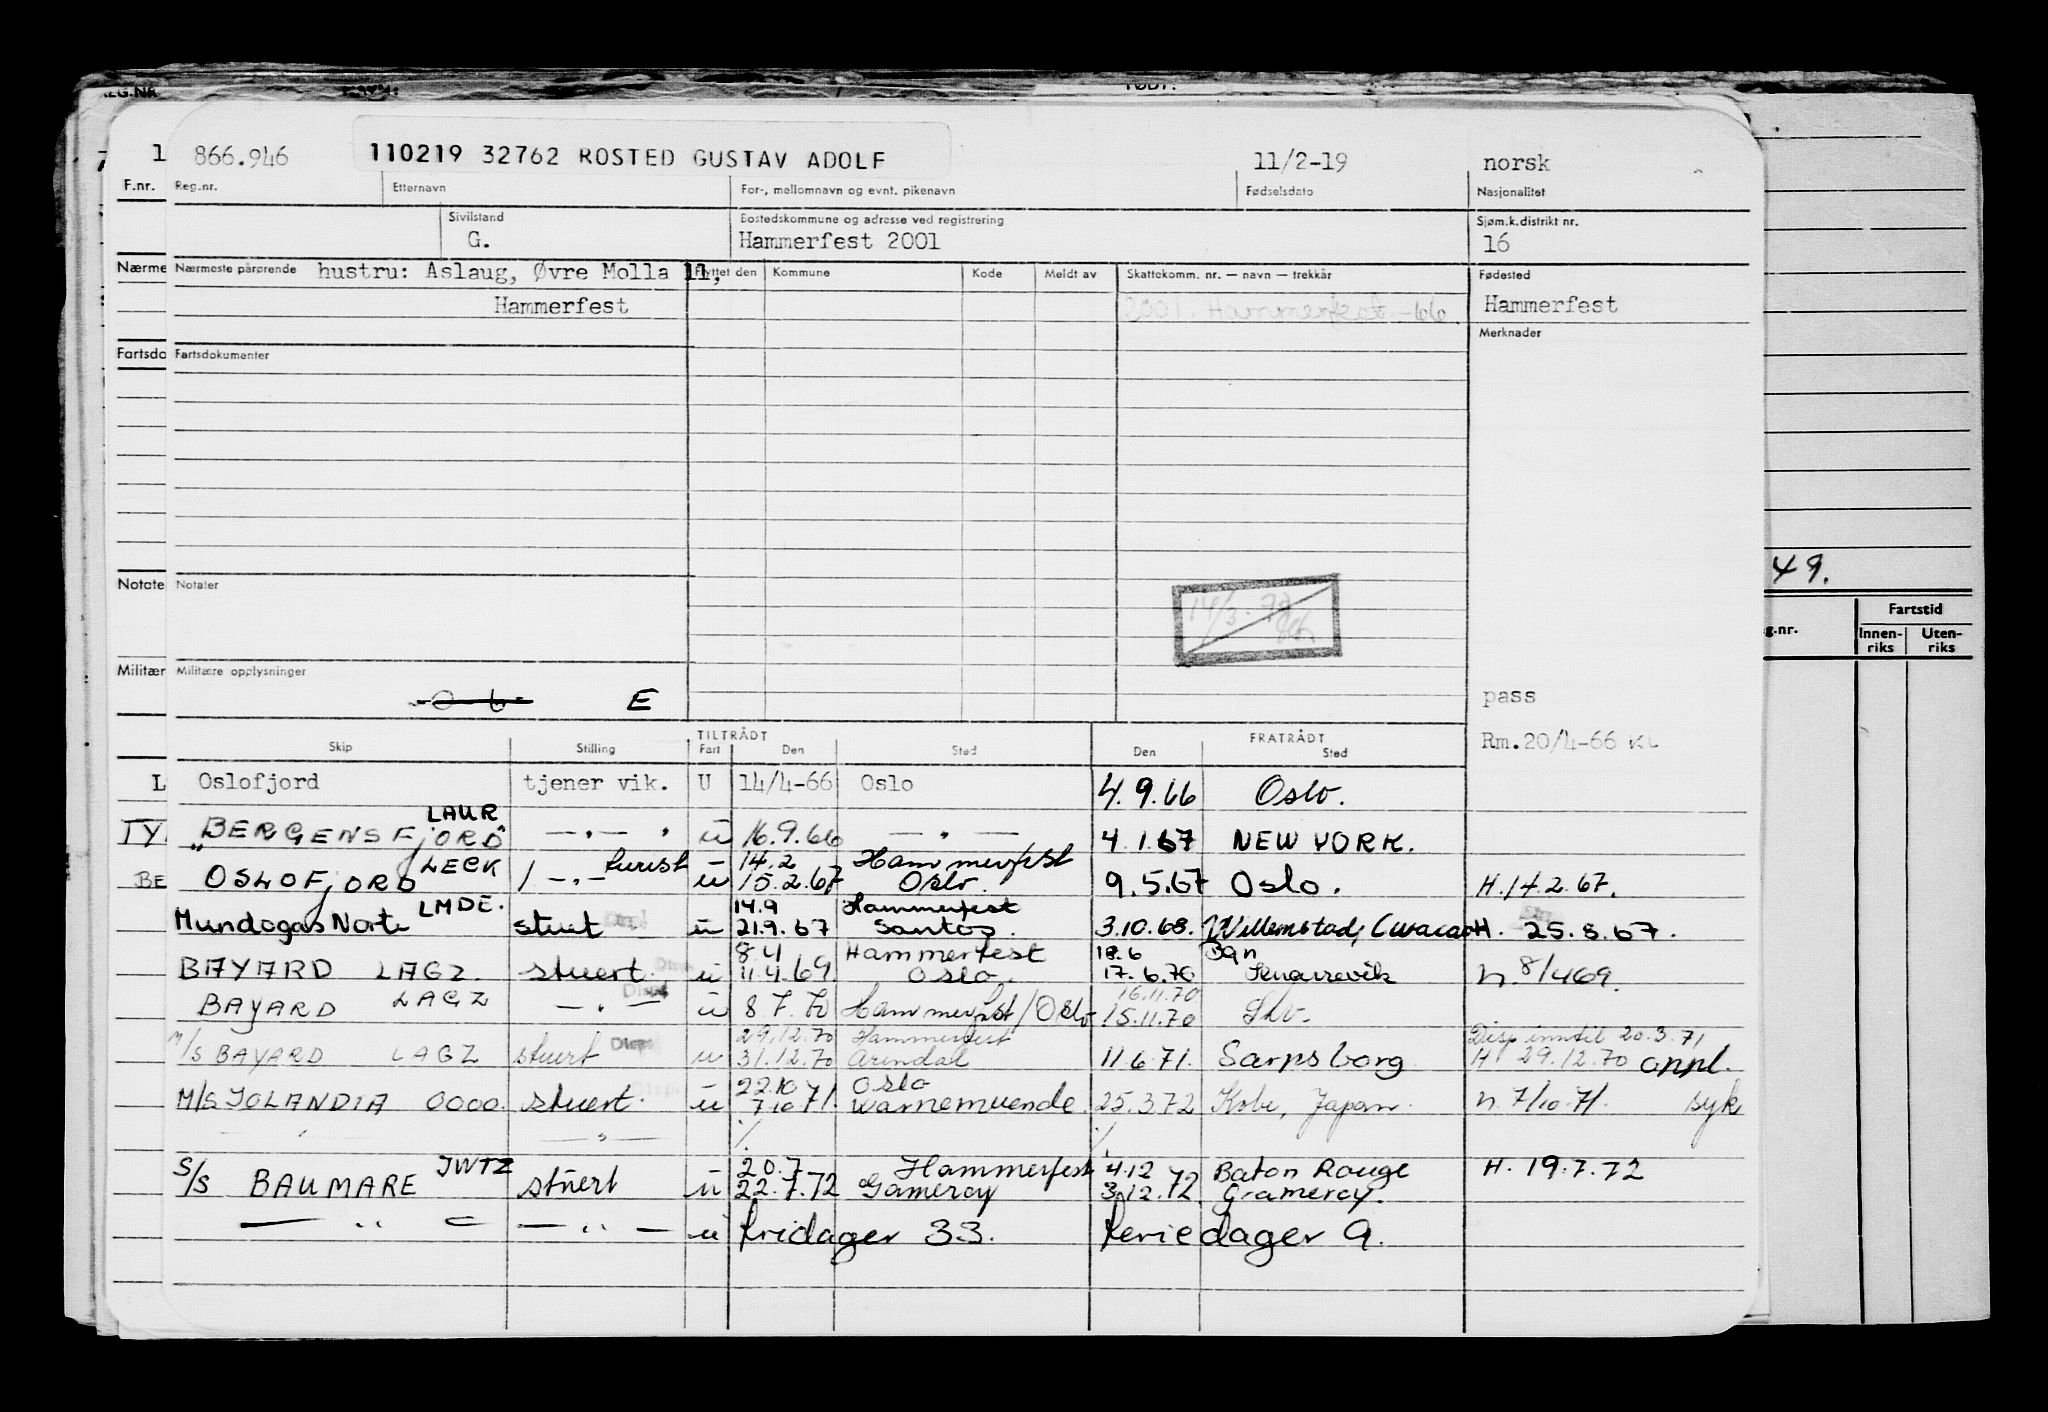 LG.NR
FØDT:
1 866.946 110219 32762 ROSTED GUSTAV ADOLF 11/2-19 norsk
F.nr. Reg.nr. Etternavn For-, mellomnavn og evnt. pikenavn Fødselsdato Nasjonalitet
Sivilstand Bostedskommune og adresse ved registrering Sjøm.k.distrikt nr.
G. Hammerfest 2001 16
Nærme Nærmeste pårørende hustru: Aslaug, Øvre Molla 11, Flyttet den Kommune Kode Meldt av Skattekomm. nr. — navn — trekkår Fødested
Hammerfest 2001 Hammerfest -66 Hammerfest
Merknader
Fartsdo Fartsdokumenter
49.
Notate Notater
14/3.72
Fartstid
g.nr. Innen-riks Uten-riks
Militær Militære opplysninger
E pass
TILTRÅDT FRATRÅDT
Skip Stilling Fart Den Sted Den Sted Rm.20/4-66 KL
L Oslofjord tjener vik. U 14/4-66 Oslo 4.9.66 Oslo.
LAUR
TY "BERGENSFJORD" — " — " u 16.9.66 — " — 4.1.67 NEW YORK.
LECK turist 14.2 Hammerfest
BE OSLOFJORD / — " — u 15.2.67 Oslo. 9.5.67 Oslo. H. 14.2.67.
LMDE. 14.9 Hammerfest
Mundogas Norte stuert u 21.9.67 Santos. 3.10.68. Willemstad, Curacao H. 25.8.67.
8.4 Hammerfest 18.6 Bgn
BAYARD LAGZ. stuert. Disp u 11.4.69 Oslo. 17.6.70 Knarrevik H. 8/4 69.
16.11.70
BAYARD LAGZ — " — Disp u 8.7.70 Hammerfest/Oslo 15.11.70
29.12.70 Hammerfest Disp inntil 20.3.71
M/S BAYARD LAGZ stuert Disp u 31.12.70 Arendal 11.6.71. Sarpsborg H 29.12.70 oppl.
22.10 Oslo
M/S JOLANDIA OOOO. stuert. Disp u 7.10.71. Warnemuende. 25.3.72 Kobe, Japan. H. 7/10.71. syk
— " — — " — % %
JWTZ 20.7 Hammerfest 4.12 Baton Rouge H. 19.7.72
S/S BAUMARE stuert u 22.7.72 Gramercy 3.12.72 Gramercy.
— " — — " — u Fridager 33. Feriedager 9.